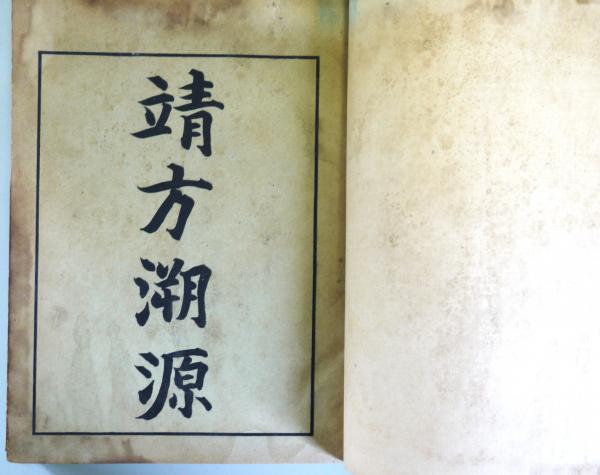 靖方溯源